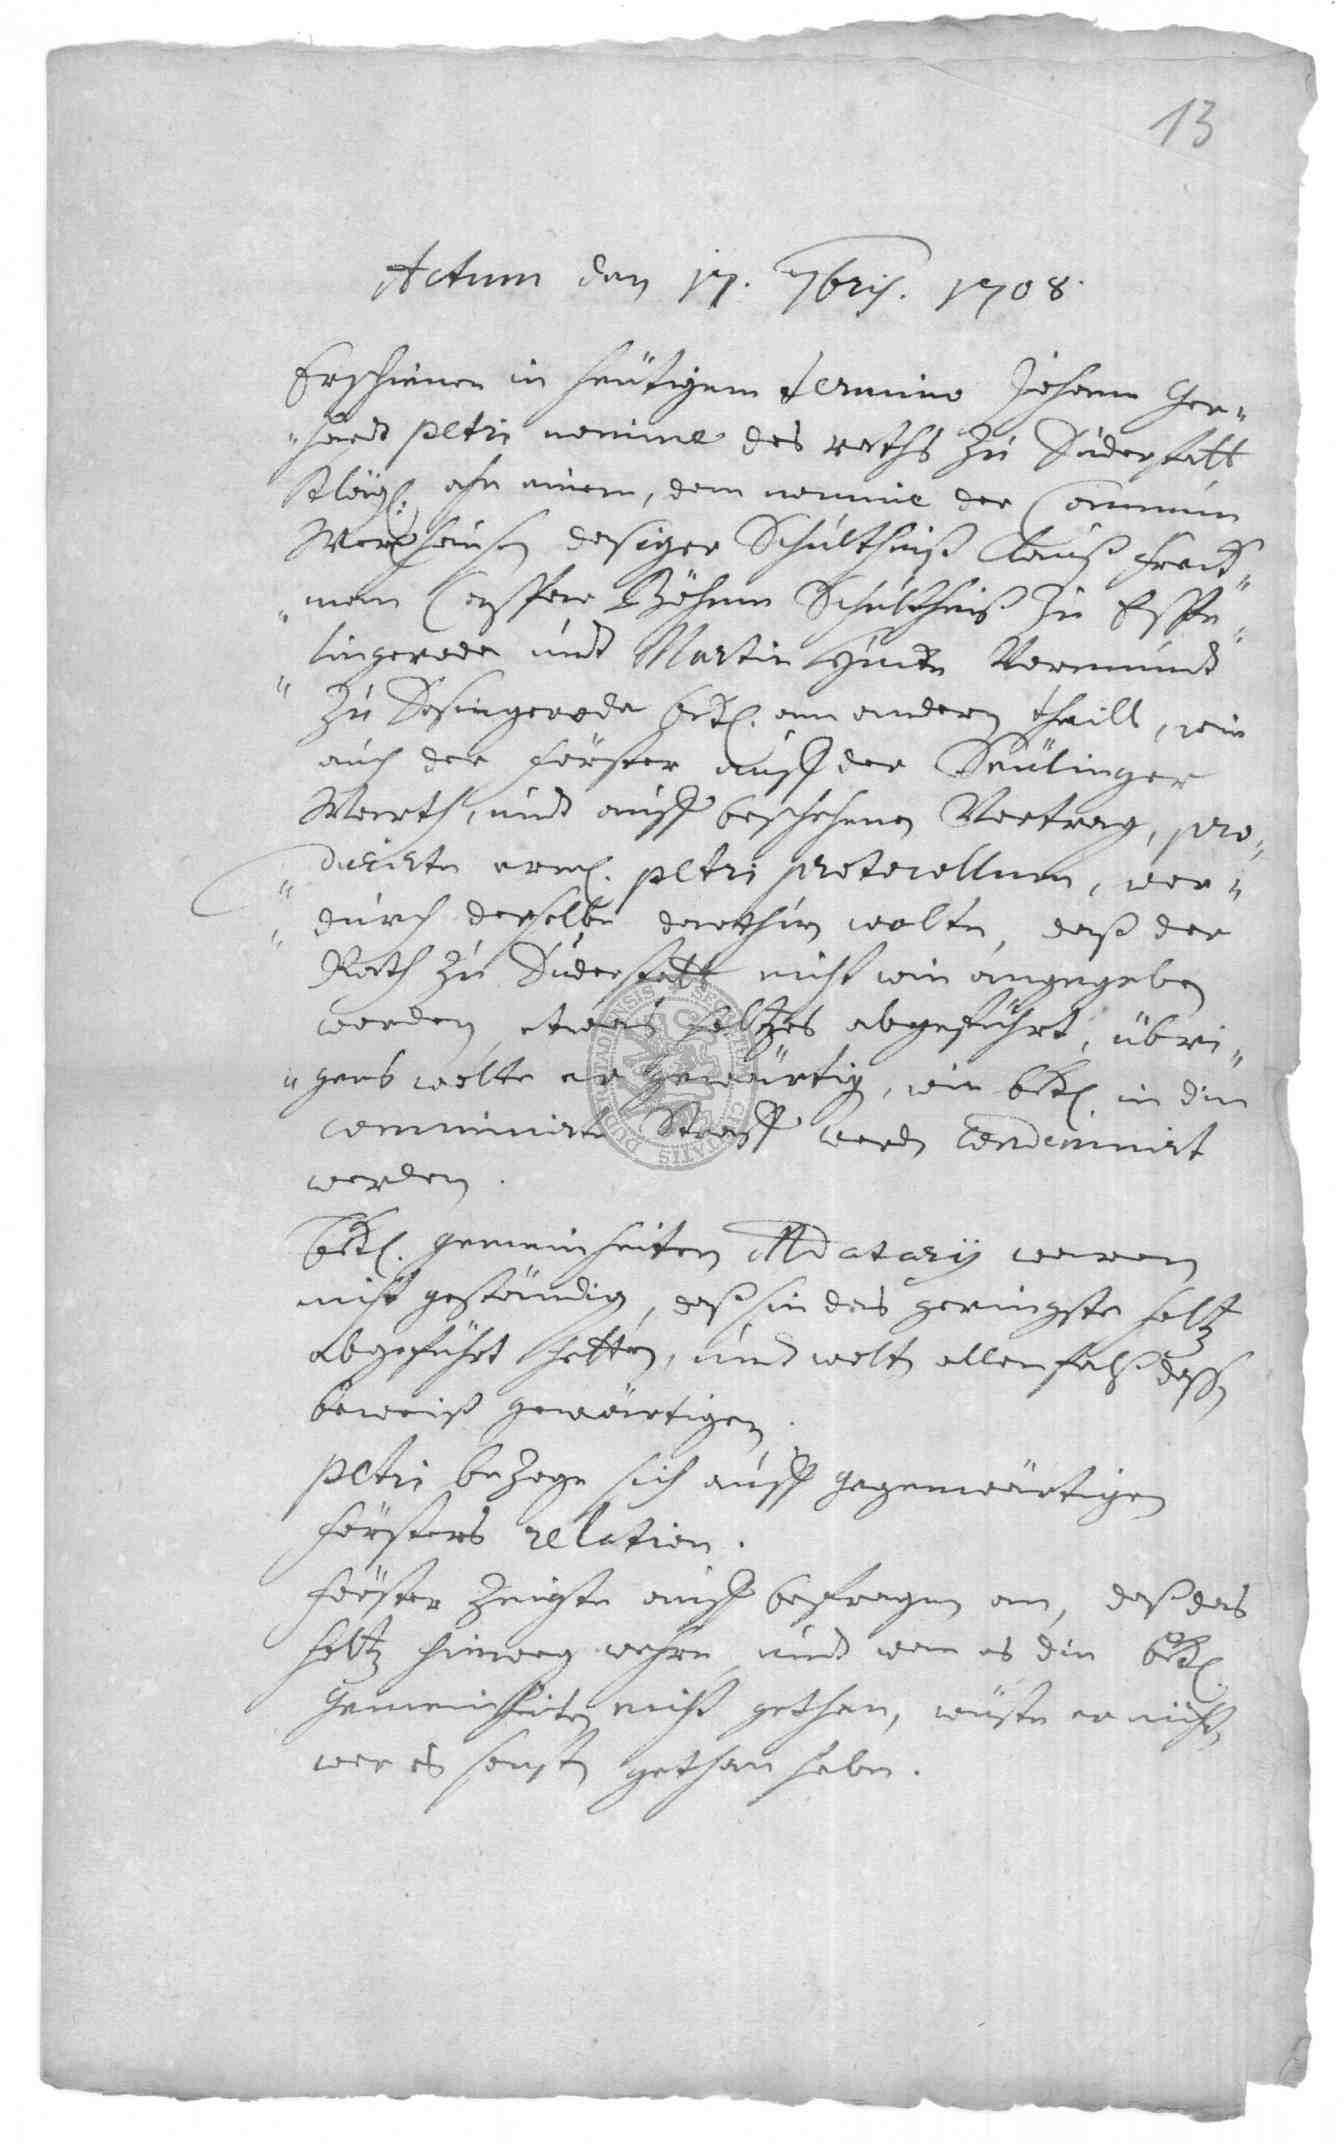 13
Actum den 17. 7bris. 1708.
Erschienen in heütigem termino Johann Ger-
hardt Petri nomine des raths zu Duderstatt
Klägl. ahn einem, dem nomine der Commun
Werxhausen dasiger Schultheiß Clauß
man Caspar Böhme Schultheiß zu Esp-
lingeroda undt Martin Vormundt
zu Desingeroda bekl. am andern theill, wie
auch der förster auff der Seülinger
Warth, undt auff beschehenen Vortrag, pro-
ducirte erml. Petri protocollum, wor-
durch derselbe darthun wolte, daß der
Rath zu Duderstatt nicht wie angegeben
worden, etwas holtzes abgeführt, übri-
gens wolte er gewärtig, wie bekl. in die
comminirte Straff werde condemnirt
werden.
bekl. gemeinheiten Mdatarij waren
nicht geständig, daß sie das geringste holtz
abgeführt hetten, undt wolten allenfalß dessen
beweiß gewärtigen.
Petri bezoge sich auff gegenwärtigen
försters relation.
förster zeigte auff befragen an, daß das
holtz hinweg wehre, undt wan es die bekl.
gemeinheiten nicht gethan, wüste er nicht,
wer es sonsten gethan habe.